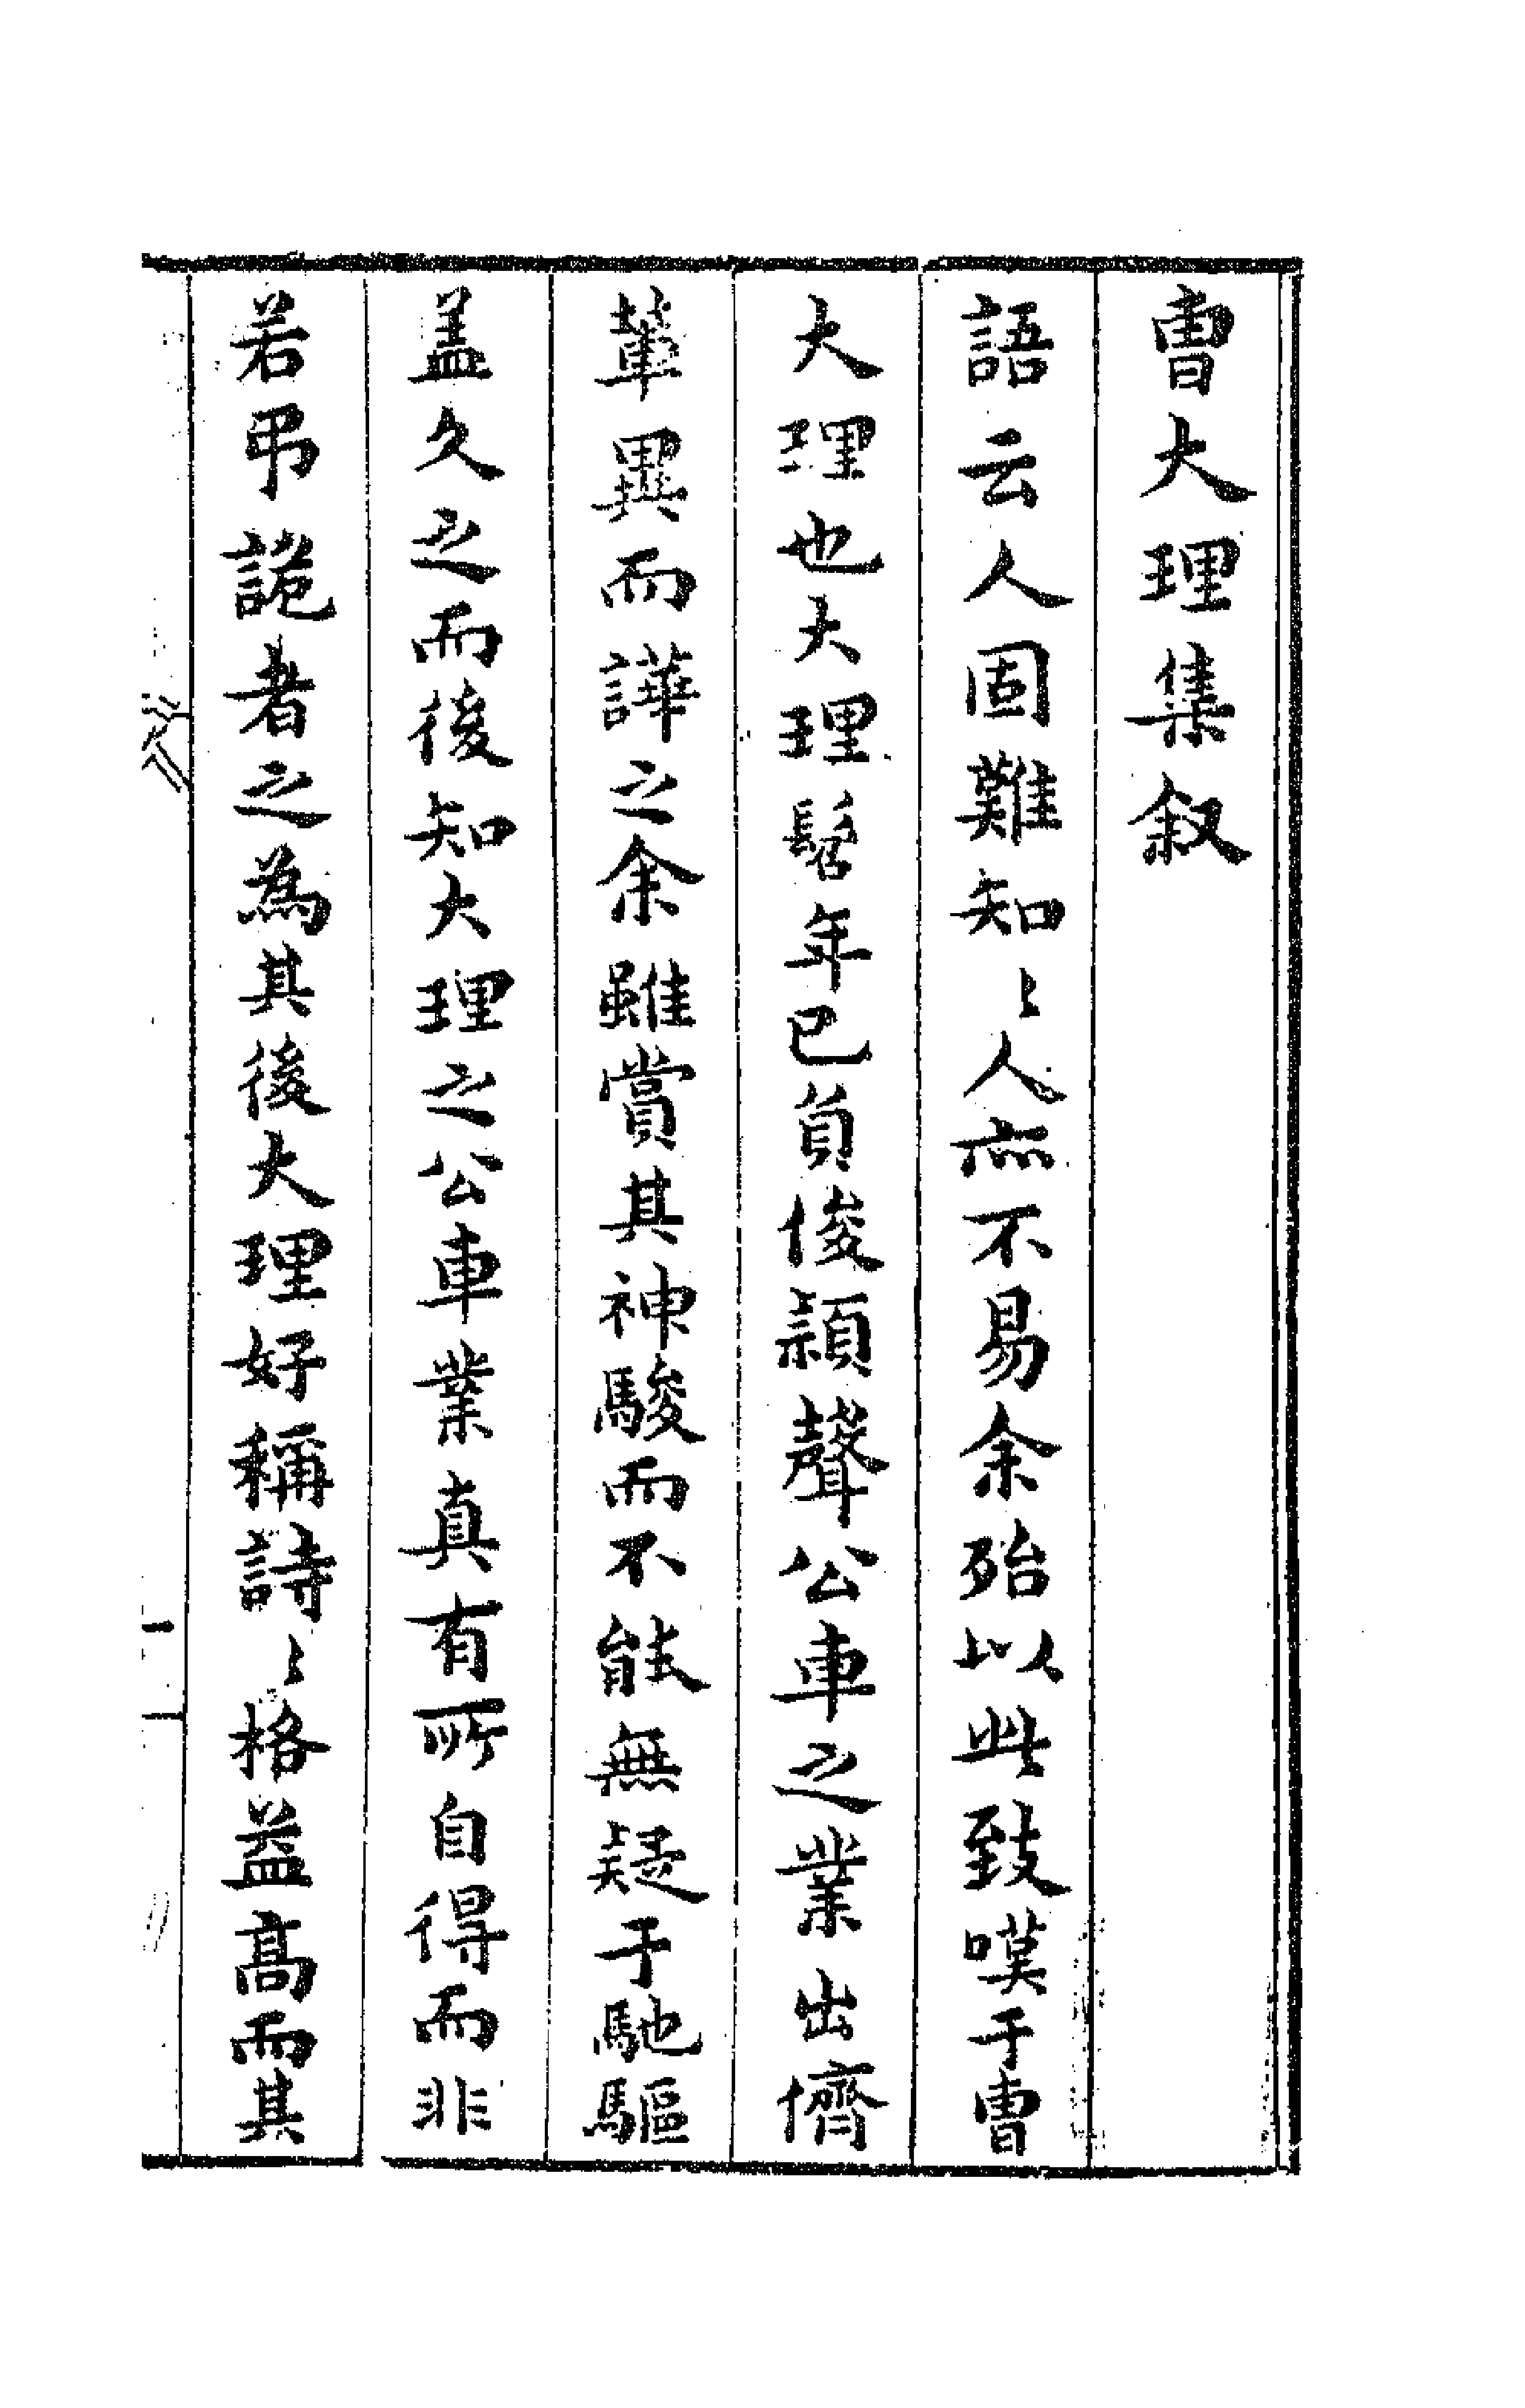 曹大理集叙
語云人固難知〻人亦不易余殆以此致嘆于曹
大理也大理髫年已負俊穎聲公車之業出儕
輩異而譁之余雖賞其神駿而不能無疑于馳驅
盖久之而後知大理之公車業真有所自得而非
若弔詭者之為其後大理好稱詩〻格益高而其